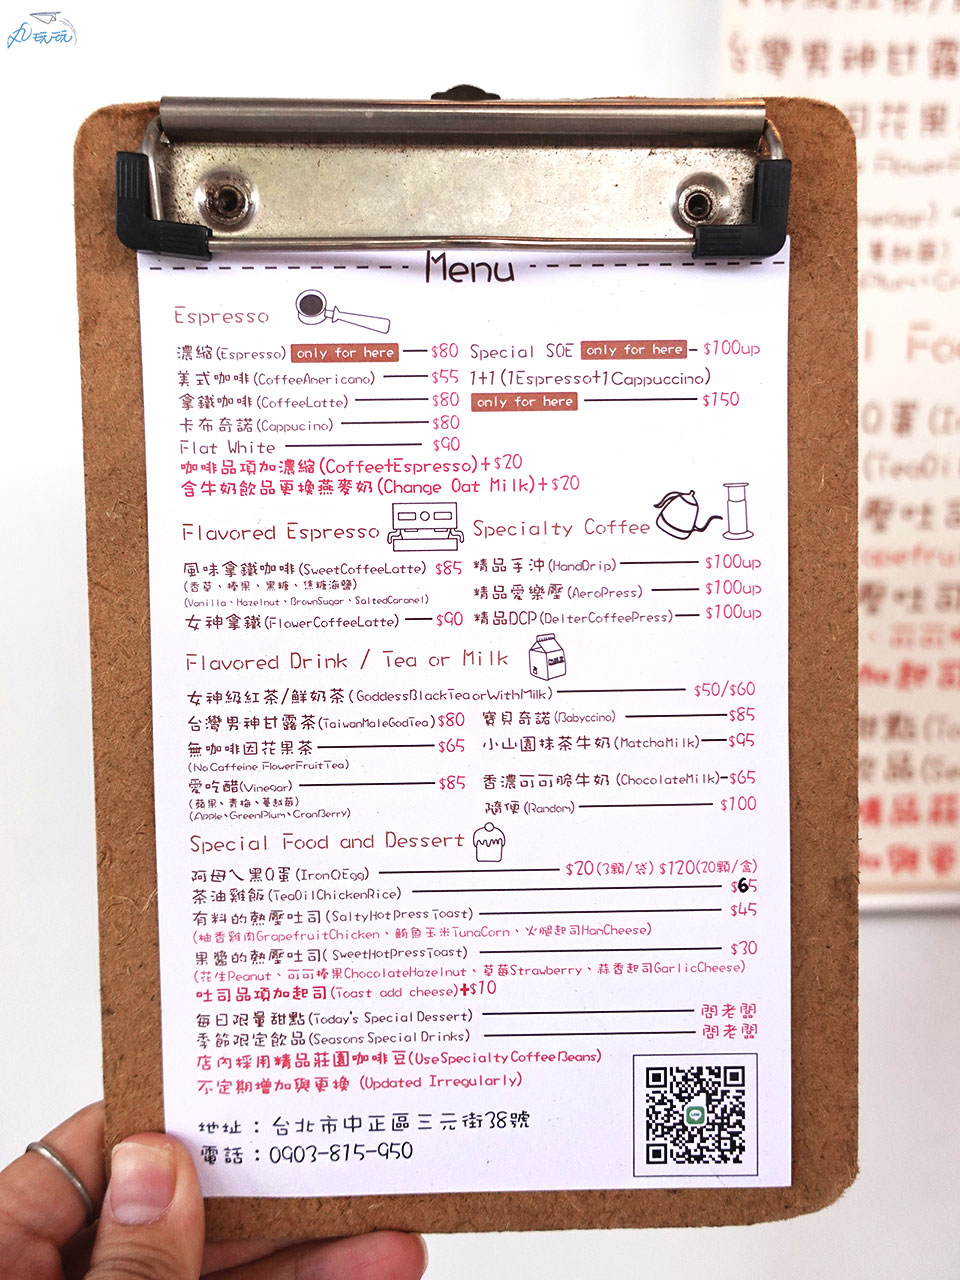 玩玩
Menu
Espresso
濃縮(Espresso) only for here $80
美式咖啡(CoffeeAmericano) $55
拿鐵咖啡(CoffeeLatte) $80
卡布奇諾(Cappucino) $80
Flat White $90
Special SOE only for here $100up
1+1(1Espresso+1Cappuccino)
only for here $150
咖啡品項加濃縮(Coffee+Espresso)+$20
含牛奶飲品更換燕麥奶(Change Oat Milk)+$20
Flavored Espresso
風味拿鐵咖啡(SweetCoffeeLatte) $85
(香草、榛果、黑糖、焦糖海鹽)
(Vanilla、Hazelnut、BrownSugar、SaltedCaramel)
女神拿鐵(FlowerCoffeeLatte) $90
Specialty Coffee
精品手沖(HandDrip) $100up
精品愛樂壓(AeroPress) $100up
精品DCP(DelterCoffeePress) $100up
Flavored Drink / Tea or Milk
女神級紅茶/鮮奶茶(GoddessBlackTeaorWithMilk) $50/$60
台灣男神甘露茶(TaiwanMaleGodTea) $80
無咖啡因花果茶 $65
(NoCaffeine FlowerFruitTea)
愛吃醋(Vinegar) $85
(蘋果、青梅、蔓越莓)
(Apple、GreenPlum、CranBerry)
寶貝奇諾(Babyccino) $85
小山園抹茶牛奶(MatchaMilk) $95
香濃可可脆牛奶(ChocolateMilk) $65
隨便(Random) $100
Special Food and Dessert
阿母ㄟ黑Q蛋(IronQEgg) $20(3顆/袋) $120(20顆/盒)
茶油雞飯(TeaOilChickenRice) $65
有料的熱壓吐司(SaltyHotPressToast) $45
(柚香雞肉GrapefruitChicken、鮪魚玉米TunaCorn、火腿起司HamCheese)
果醬的熱壓吐司(SweetHotPressToast) $30
(花生Peanut、可可榛果ChocolateHazelnut、草莓Strawberry、蒜香起司GarlicCheese)
吐司品項加起司(Toast add cheese)+$10
每日限量甜點(Today's Special Dessert) 問老闆
季節限定飲品(Seasons Special Drinks) 問老闆
店內採用精品莊園咖啡豆(UseSpecialtyCoffeeBeans)
不定期增加與更換 (Updated Irregularly)
地址：台北市中正區三元街38號
電話：0903-815-950